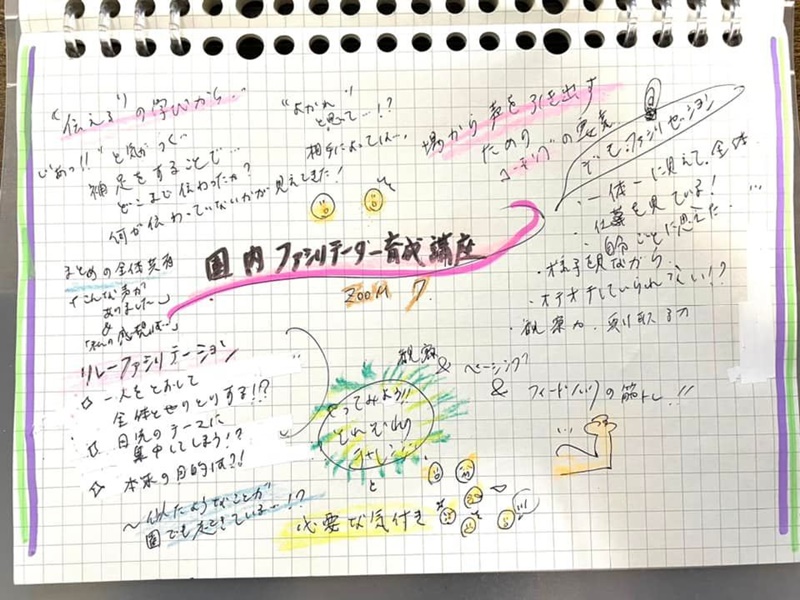 "伝える"の学びから…
"あっ!!"と気がつく…
補足をすることで…
どこまで伝わったか?
何が伝わっていないかが見えてきた!
"よかれ"
と思って…!?
相手によっては…、
場から声を引き出す
ための
コーチングの要素
デモ・ファシリセッション
・一体一に見えて、全体
・仕草を見ている!
自分ごとに思えた…
・様子を見ながら
・オチオチしていられない!?
・観察力、受け取る力
園内ファシリテーター育成講座
ZOOM 7
まとめの全体共有
「こんな声が
ありました…」
&
「私の感想は…」
リレーファシリテーション
☆ 一人をとおして
全体とやりとりする!?
☆ 目先のテーマに
集中してしまう!?
☆ 本来の目的は?!
〜似たようなことが
園でも起きている…!?
観察
& ペーシング
& フィードバックの筋トレ!!
やってみよう!!
それぞれの
チャレンジ
と
必要な気付き